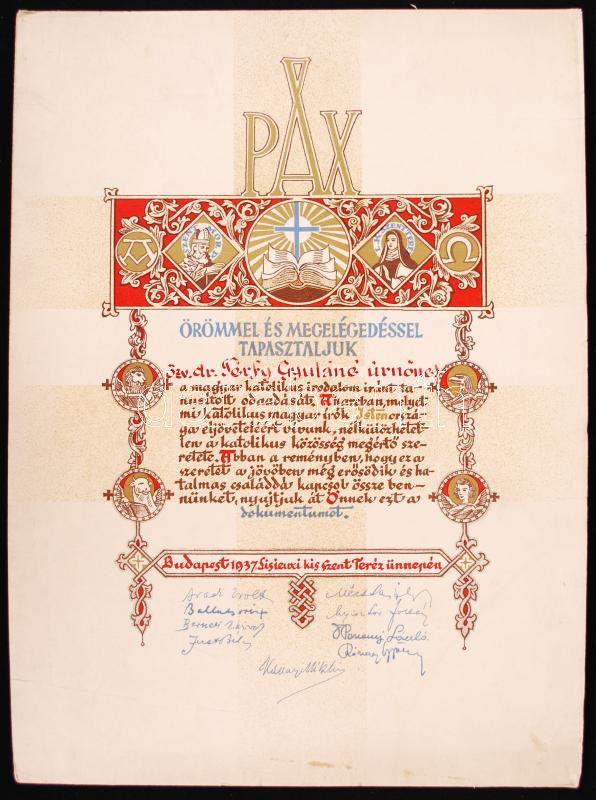 PAX
SZENT MÓR
SZENT TERÉZ
Α
Ω
ÖRÖMMEL ÉS MEGELÉGEDÉSSEL
TAPASZTALJUK
özv. dr. Térfy Gyuláné úrnőnek
a magyar katolikus irodalom iránt ta-
nusított odaadását. A harcban, melyet
mi katolikus magyar írók Isten orszá-
ga eljöveteléért vívunk, nélkülözhetet-
len a katolikus közösség megértő sze-
retete. Abban a reményben, hogy ez a
szeretet a jövőben még erősödik és ha-
talmas családdá kapcsol össze ben-
nünket, nyujtjuk át Önnek ezt a
dokumentumot.
Budapest 1937. Lisieuxi kis Szent Teréz ünnepén
Aradi Zsolt
Mécs László
Balla Borisz
Possonyi László
Just Béla
Rónay György
Kállay Miklós